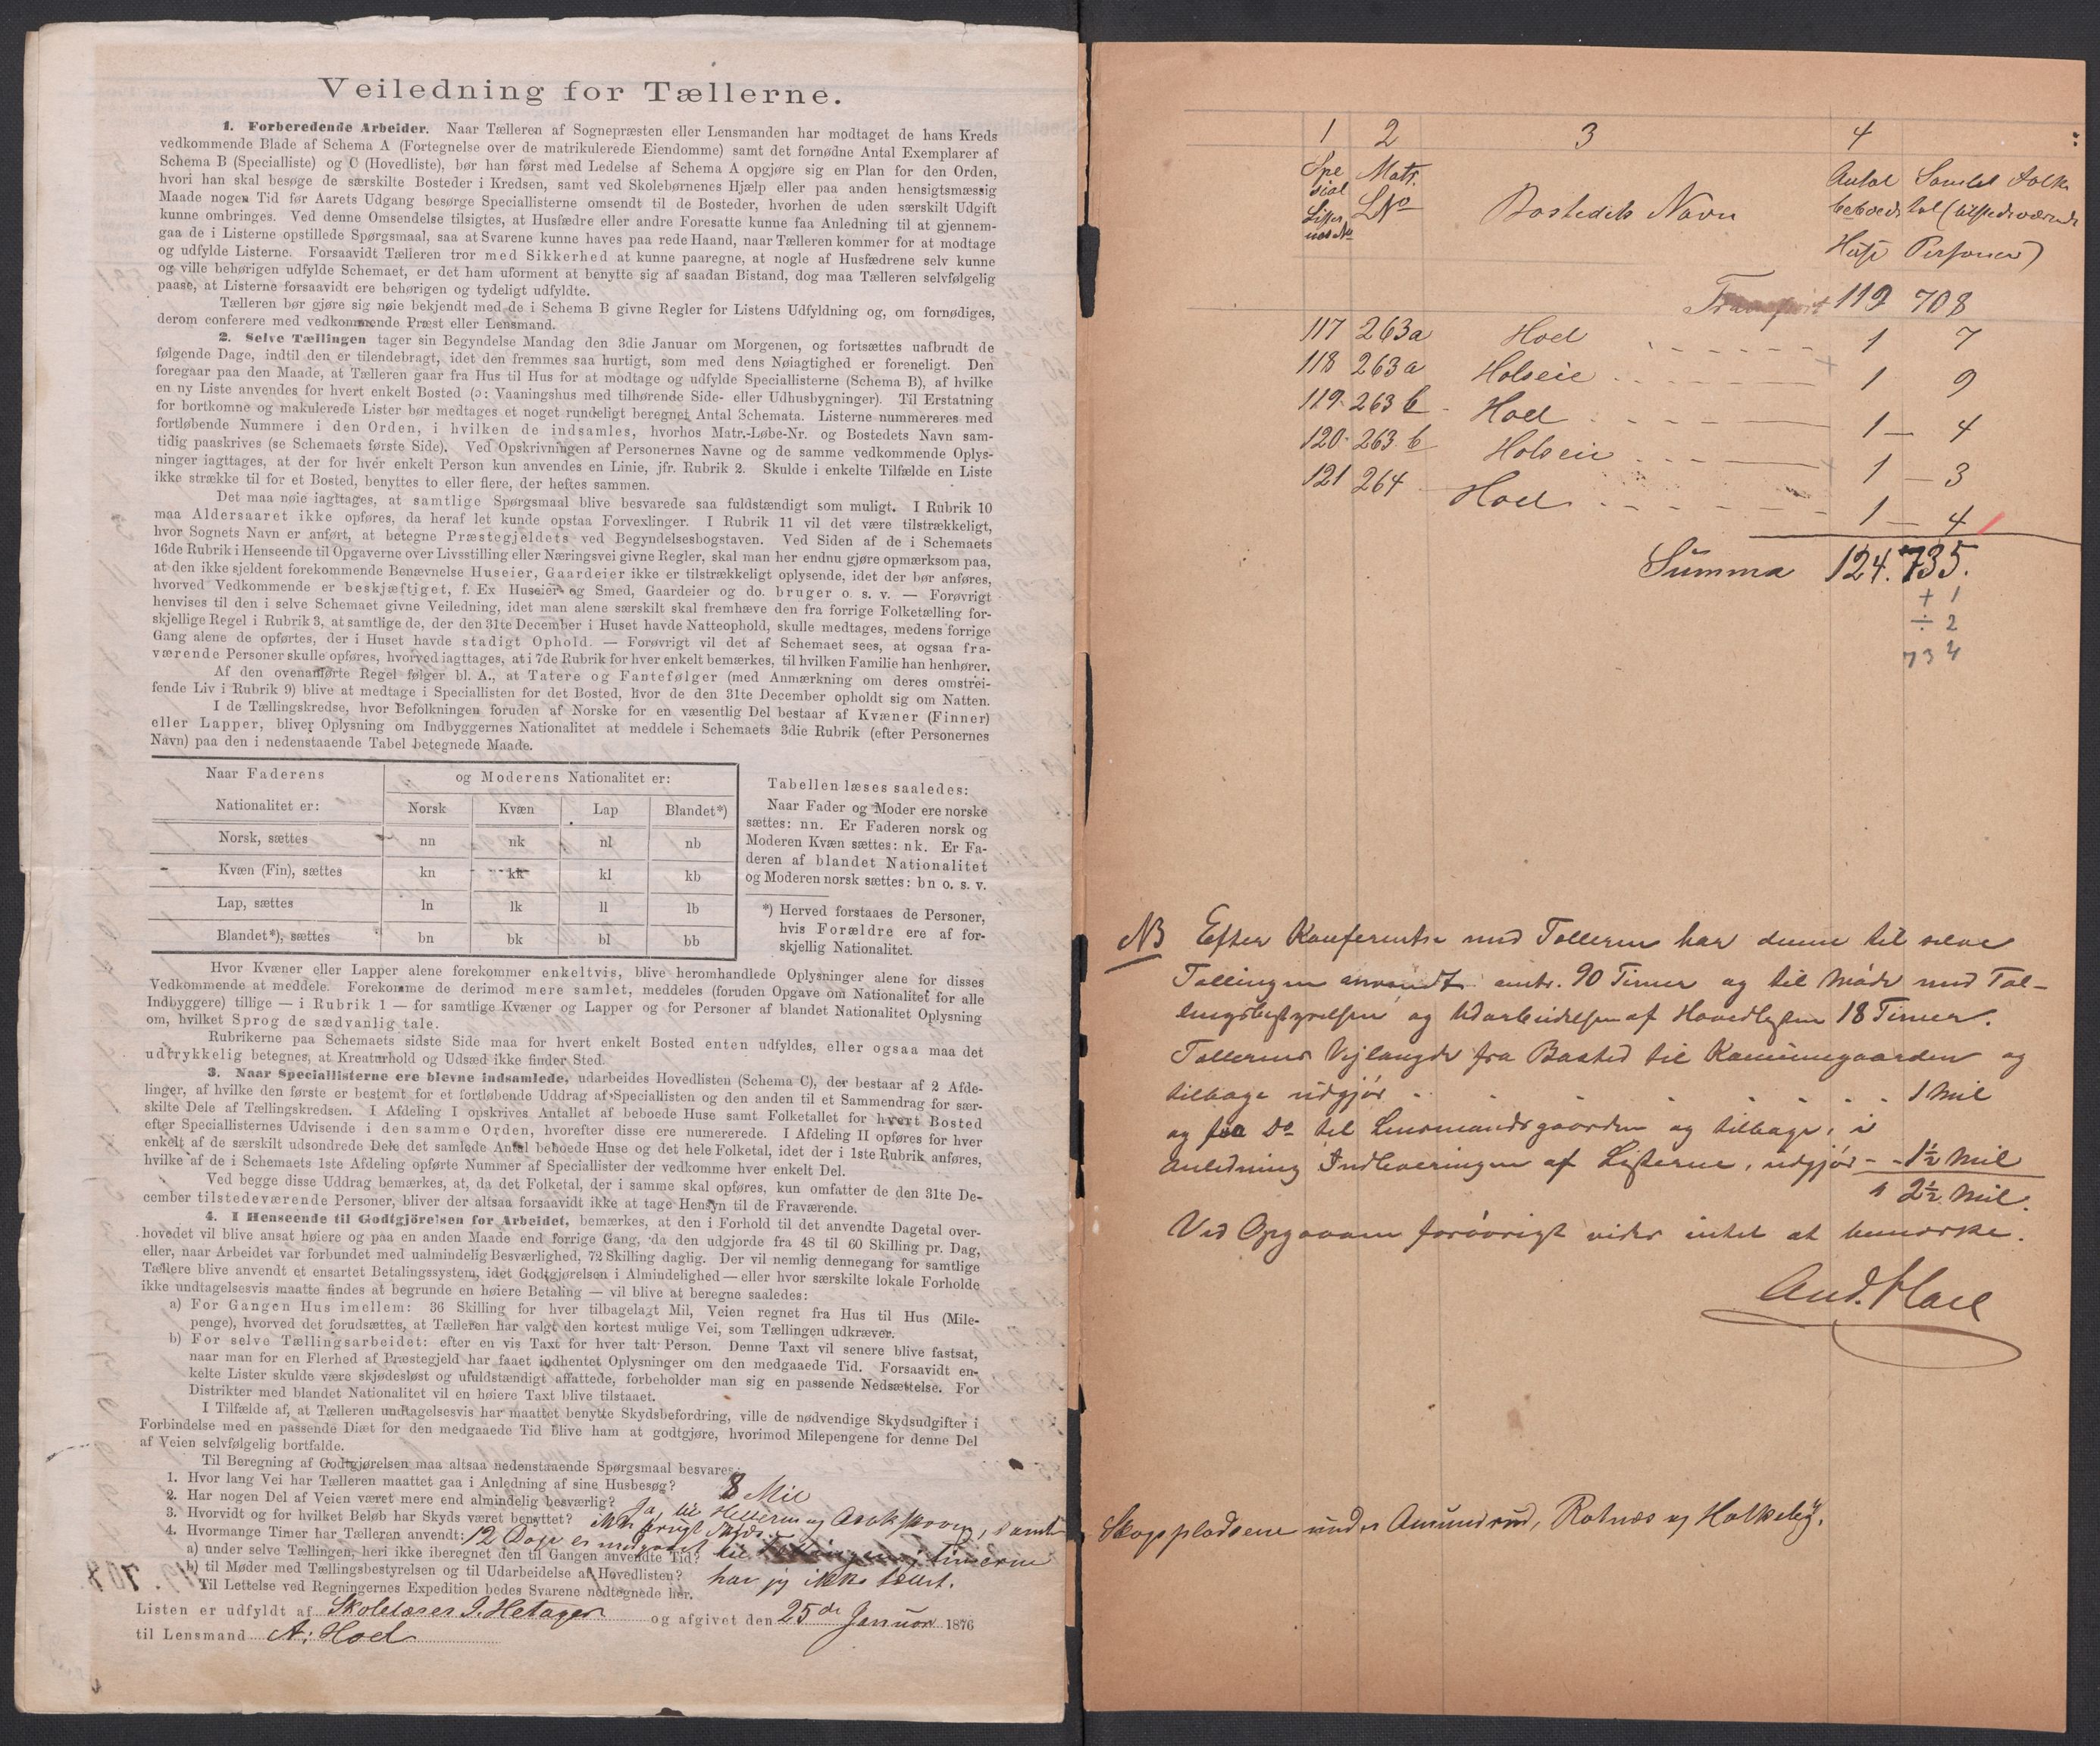 Veiledning for Tællerne.
1. Forberedende Arbeider. Naar Tælleren af Sognepræsten eller Lensmanden har modtaget de hans Kreds
vedkommende Blade af Schema A (Fortegnelse over de matrikulerede Eiendomme) samt det fornødne Antal Exemplarer af
Schema B (Specialliste) og C (Hovedliste), bør han først med Ledelse af Schema A opgjøre sig en Plan for den Orden,
hvori han skal besøge de særskilte Bosteder i Kredsen, samt ved Skolebørnenes Hjælp eller paa anden hensigtsmæssig
Maade nogen Tid før Aarets Udgang besørge Speciallisterne omsendt til de Bosteder, hvorhen de uden særskilt Udgift
kunne ombringes. Ved denne Omsendelse tilsigtes, at Husfædre eller andre Foresatte kunne faa Anledning til at gjennem-
gaa de i Listerne opstillede Spørgsmaal, saa at Svarene kunne haves paa rede Haand, naar Tælleren kommer for at modtage
og udfylde Listerne. Forsaavidt Tælleren tror med Sikkerhed at kunne paaregne, at nogle af Husfædrene selv kunne
og ville behørigen udfylde Schemaet, er det ham uforment at benytte sig af saadan Bistand, dog maa Tælleren selvfølgelig
paase, at Listerne forsaavidt ere behørigen og tydeligt udfyldte.
Tælleren bør gjøre sig nøie bekjendt med de i Schema B givne Regler for Listens Udfyldning og, om fornødiges,
derom conferere med vedkommende Præst eller Lensmand.
2. Selve Tællingen tager sin Begyndelse Mandag den 3die Januar om Morgenen, og fortsættes uafbrudt de
følgende Dage, indtil den er tilendebragt, idet den fremmes saa hurtigt, som med dens Nøiagtighed er foreneligt. Den
foregaar paa den Maade, at Tælleren gaar fra Hus til Hus for at modtage og udfylde Speciallisterne (Schema B), af hvilke
en ny Liste anvendes for hvert enkelt Bosted (ɔ: Vaaningshus med tilhørende Side- eller Udhusbygninger). Til Erstatning
for bortkomne og makulerede Lister bør medtages et noget rundeligt beregnet Antal Schemata. Listerne nummereres med
fortløbende Nummere i den Orden, i hvilken de indsamles, hvorhos Matr.-Løbe-Nr. og Bostedets Navn sam-
tidig paaskrives (se Schemaets første Side). Ved Opskrivningen af Personernes Navne og de samme vedkommende Oplys-
ninger iagttages, at der for hver enkelt Person kun anvendes en Linie, jfr. Rubrik 2. Skulde i enkelte Tilfælde en Liste
ikke strække til for et Bosted, benyttes to eller flere, der heftes sammen.
Det maa nøie iagttages, at samtlige Spørgsmaal blive besvarede saa fuldstændigt som muligt. I Rubrik 10
maa Aldersaaret ikke opføres, da heraf let kunde opstaa Forvexlinger. I Rubrik 11 vil det være tilstrækkeligt,
hvor Sognets Navn er anført, at betegne Præstegjeldets ved Begyndelsesbogstaven. Ved Siden af de i Schemaets
16de Rubrik i Henseende til Opgaverne over Livsstilling eller Næringsvei givne Regler, skal man her endnu gjøre opmærksom paa,
at den ikke sjeldent forekommende Benævnelse Huseier, Gaardeier ikke er tilstrækkeligt oplysende, idet der bør anføres,
hvorved Vedkommende er beskjæftiget, f. Ex Huseier og Smed, Gaardeier og do. bruger o. s. v. — Forøvrigt
henvises til den i selve Schemaet givne Veiledning, idet man alene særskilt skal fremhæve den fra forrige Folketælling for-
skjellige Regel i Rubrik 3, at samtlige de, der den 31te December i Huset havde Natteophold, skulle medtages, medens forrige
Gang alene de opførtes, der i Huset havde stadigt Ophold. — Forøvrigt vil det af Schemaet sees, at ogsaa fra-
værende Personer skulle opføres, hvorved iagttages, at i 7de Rubrik for hver enkelt bemærkes, til hvilken Familie han henhører.
Af den ovenanførte Regel følger bl. A., at Tatere og Fantefølger (med Anmærkning om deres omstrei-
fende Liv i Rubrik 9) blive at medtage i Speciallisten for det Bosted, hvor de den 31te December opholdt sig om Natten.
I de Tællingskredse, hvor Befolkningen foruden af Norske for en væsentlig Del bestaar af Kvæner (Finner)
eller Lapper, bliver Oplysning om Indbyggernes Nationalitet at meddele i Schemaets 3die Rubrik (efter Personernes
Navn) paa den i nedenstaaende Tabel betegnede Maade.
Naar Faderens og Moderens Nationalitet er:
Nationalitet er: Norsk Kvæn Lap Blandet*)
Norsk, sættes nn nk nl nb
Kvæn (Fin), sættes kn kk kl kb
Lap, sættes ln lk ll lb
Blandet*), sættes bn bk bl bb
Tabellen læses saaledes:
Naar Fader og Moder ere norske
sættes: nn. Er Faderen norsk og
Moderen Kvæn sættes: nk. Er Fa-
deren af blandet Nationalitet
og Moderen norsk sættes: bn o. s. v.
*) Herved forstaaes de Personer,
hvis Forældre ere af for-
skjellig Nationalitet.
Hvor Kvæner eller Lapper alene forekommer enkeltvis, blive heromhandlede Oplysninger alene for disses
Vedkommende at meddele. Forekomme de derimod mere samlet, meddeles (foruden Opgave om Nationalitet for alle
Indbyggere) tillige — i Rubrik 1 — for samtlige Kvæner og Lapper og for Personer af blandet Nationalitet Oplysning
om, hvilket Sprog de sædvanlig tale.
Rubrikerne paa Schemaets sidste Side maa for hvert enkelt Bosted enten udfyldes, eller ogsaa maa det
udtrykkelig betegnes, at Kreaturhold og Udsæd ikke finder Sted.
3. Naar Speciallisterne ere blevne indsamlede, udarbeides Hovedlisten (Schema C), der bestaar af 2 Afde-
linger, af hvilke den første er bestemt for et fortløbende Uddrag af Speciallisten og den anden til et Sammendrag for sær-
skilte Dele af Tællingskredsen. I Afdeling I opskrives Antallet af beboede Huse samt Folketallet for hvert Bosted
efter Speciallisternes Udvisende i den samme Orden, hvorefter disse ere numererede. I Afdeling II opføres for hver
enkelt af de særskilt udsondrede Dele det samlede Antal beboede Huse og det hele Folketal, idet der i 1ste Rubrik anføres,
hvilke af de i Schemaets 1ste Afdeling opførte Nummer af Speciallister der vedkomme hver enkelt Del.
Ved begge disse Uddrag bemærkes, at, da det Folketal, der i samme skal opføres, kun omfatter de den 31te De-
cember tilstedeværende Personer, bliver der altsaa forsaavidt ikke at tage Hensyn til de Fraværende.
4. I Henseende til Godtgjörelsen for Arbeidet, bemærkes, at den i Forhold til det anvendte Dagetal over-
hovedet vil blive ansat høiere og paa en anden Maade end forrige Gang, da den udgjorde fra 48 til 60 Skilling pr. Dag,
eller, naar Arbeidet var forbundet med ualmindelig Besværlighed, 72 Skilling daglig. Der vil nemlig dennegang for samtlige
Tællere blive anvendt et ensartet Betalingssystem, idet Godtgjørelsen i Almindelighed — eller hvor særskilte lokale Forholde
ikke undtagelsesvis maatte findes at begrunde en høiere Betaling — vil blive at beregne saaledes:
a) For Gangen Hus imellem: 36 Skilling for hver tilbagelagt Mil, Veien regnet fra Hus til Hus (Mile-
penge), hvorved det forudsættes, at Tælleren har valgt den kortest mulige Vei, som Tællingen udkræver.
b) For selve Tællingsarbeidet: efter en vis Taxt for hver talt Person. Denne Taxt vil senere blive fastsat,
naar man for en Flerhed af Præstegjeld har faaet indhentet Oplysninger om den medgaaede Tid. Forsaavidt en-
kelte Lister skulde være skjødesløst og ufuldstændigt affattede, forbeholder man sig en passende Nedsættelse. For
Distrikter med blandet Nationalitet vil en høiere Taxt blive tilstaaet.
I Tilfælde af, at Tælleren undtagelsesvis har maattet benytte Skydsbefordring, ville de nødvendige Skydsudgifter i
Forbindelse med en passende Diæt for den medgaaede Tid blive ham at godtgjøre, hvorimod Milepengene for denne Del
af Veien selvfølgelig bortfalde.
Til Beregning af Godtgjørelsen maa altsaa nedenstaaende Spørgsmaal besvares:
1. Hvor lang Vei har Tælleren maattet gaa i Anledning af sine Husbesøg? 8 Mil
2. Har nogen Del af Veien været mere end almindelig besværlig? Ja, til og samt
3. Hvorvidt og for hvilket Beløb har Skyds været benyttet? ikke brugt Skyds.
4. Hvormange Timer har Tælleren anvendt: 12 Dage er medgaaet til Timerne
a) under selve Tællingen, heri ikke iberegnet den til Gangen anvendte Tid?
b) til Møder med Tællingsbestyrelsen og til Udarbeidelse af Hovedlisten? har jeg ikke tællet.
Til Lettelse ved Regningernes Expedition bedes Svarene nedtegnede her.
Listen er udfyldt af Skolelærer J. Hetager og afgivet den 25de Januar 1876
til Lensmand A. Hoel
1 2 3 4
Spe Matr. Antal Samlet Folke
sial LNo Bostedets Navn beboede tal (tilstedeværende
Listernes No Huse Personer)
Transport 119 708
117 263a Hoel 1 7
118 263a Holseie 1 9
119 263b Hoel 1 — 4
120 263b Holseie 1 — 3
121 264 Hoel 1 — 4
Summa 124. 735.
+ 1
÷ 2
734
NB Efter Konferentse med Tælleren har denne til selve
Tællingen anvendt omtr. 90 Timer og til Møde med Tæl-
lingsbestyrelsen og Udarbeidelsen af Hovedlisten 18 Timer.
Tællerens Vejlængde fra Bosted til Kommunegaarden og
tilbage udgjør 1 Mil
og fra Do til Lensmandsgaarden og tilbage, i
Anledning Indleveringen af Listerne, udgjør - - 1½ Mil
2½ Mil.
Ved Opgaven forøvrigt vides intet at bemærke.
And. Hoel
Skogspladsene under Amundrud, Rotnæs og Hakkeby.